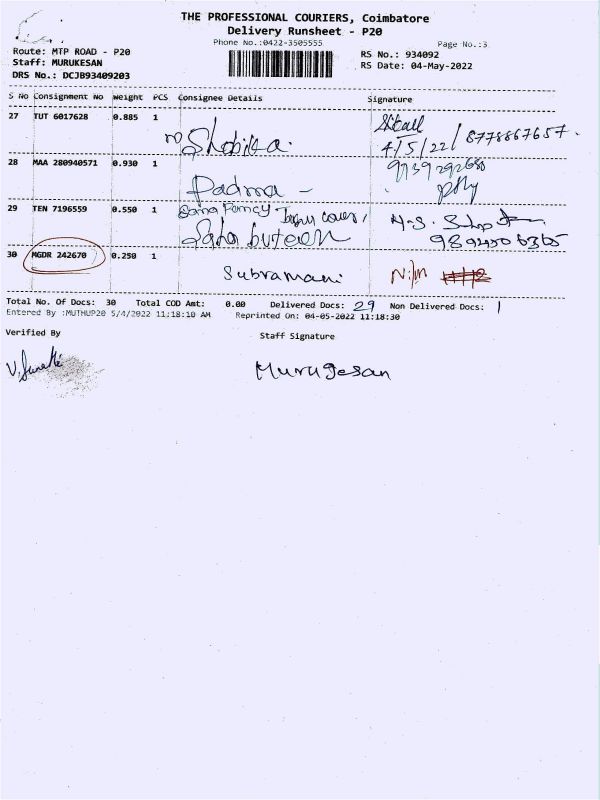 THE PROFESSIONAL COURIERS, Coimbatore
Delivery Runsheet - P20
Phone No.:0422-3505555
Page No.:3
Route: MTP ROAD - P20
Staff: MURUKESAN
DRS No.: DCJB93409203
RS No.: 934092
RS Date: 04-May-2022
S No Consignment No Weight PCS Consignee Details Signature
27 TUT 6017628 0.885 1 Shobika.
4/5/22/ 8778867657.
28 MAA 280940571 0.930 1 Padma -
29 TEN 7196559 0.550 1
30 MGDR 242670 0.250 1 Subramani
Total No. Of Docs: 30 Total COD Amt: 0.00 Delivered Docs: 29 Non Delivered Docs: 1
Entered By :MUTHUP20 5/4/2022 11:18:10 AM Reprinted On: 04-05-2022 11:18:30
Verified By
Staff Signature
Murugesan